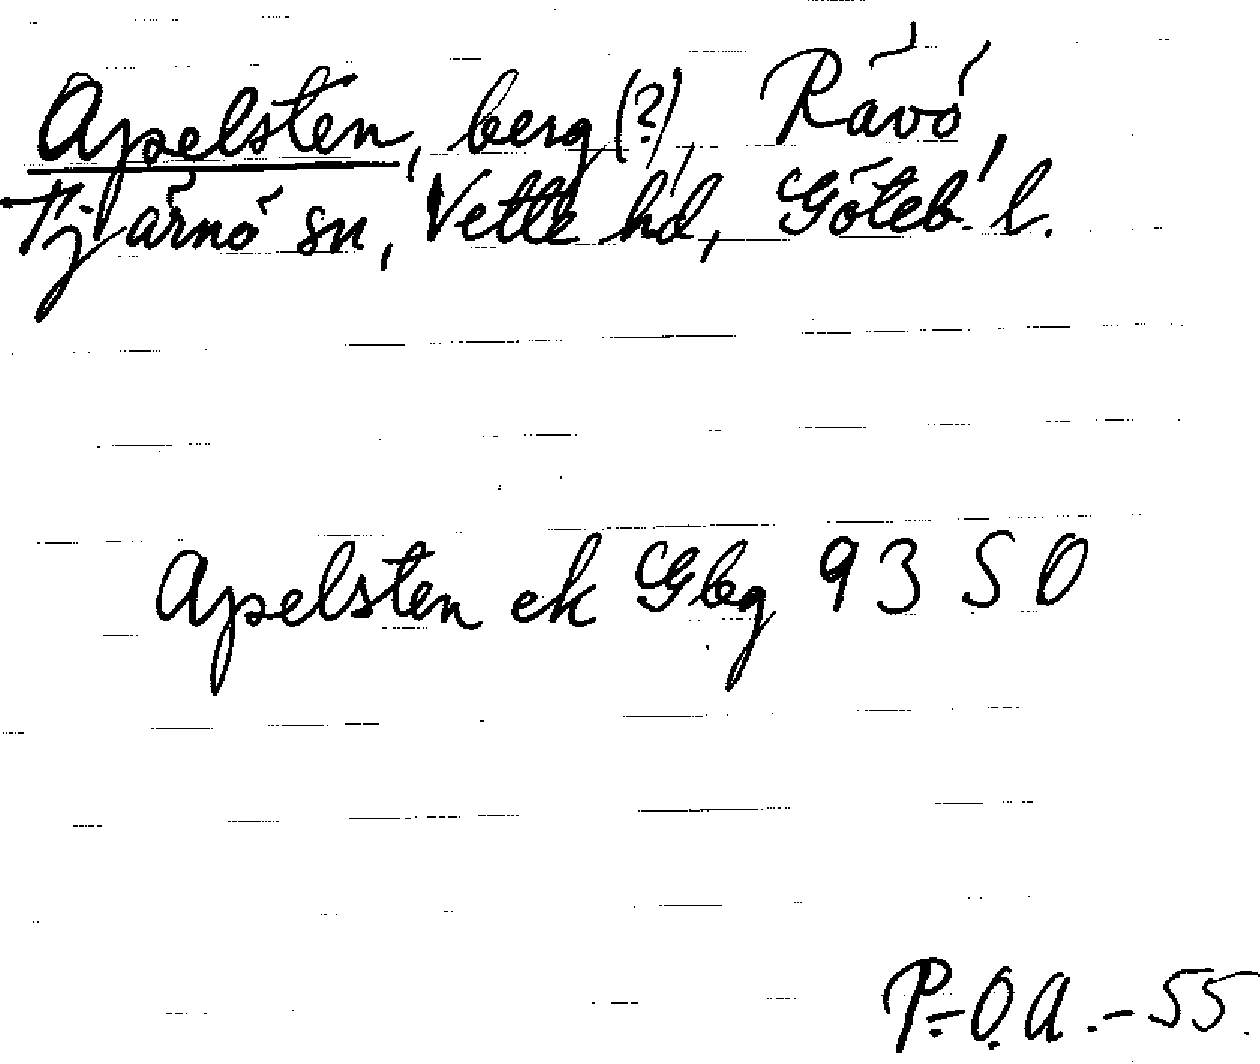 Apelsten, berg (?), Råvö,
Tjärnö sn, Vette hd, Göteb. l.
Apelsten ek Gbg 93 SO
P.-O.A.-55.